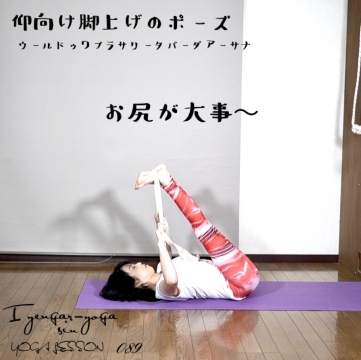 仰向け脚上げのポーズ
ウールドゥワプラサリータパーダアーサナ
お尻が大事～
Iyengar-yoga
sin
YOGA LESSON 089